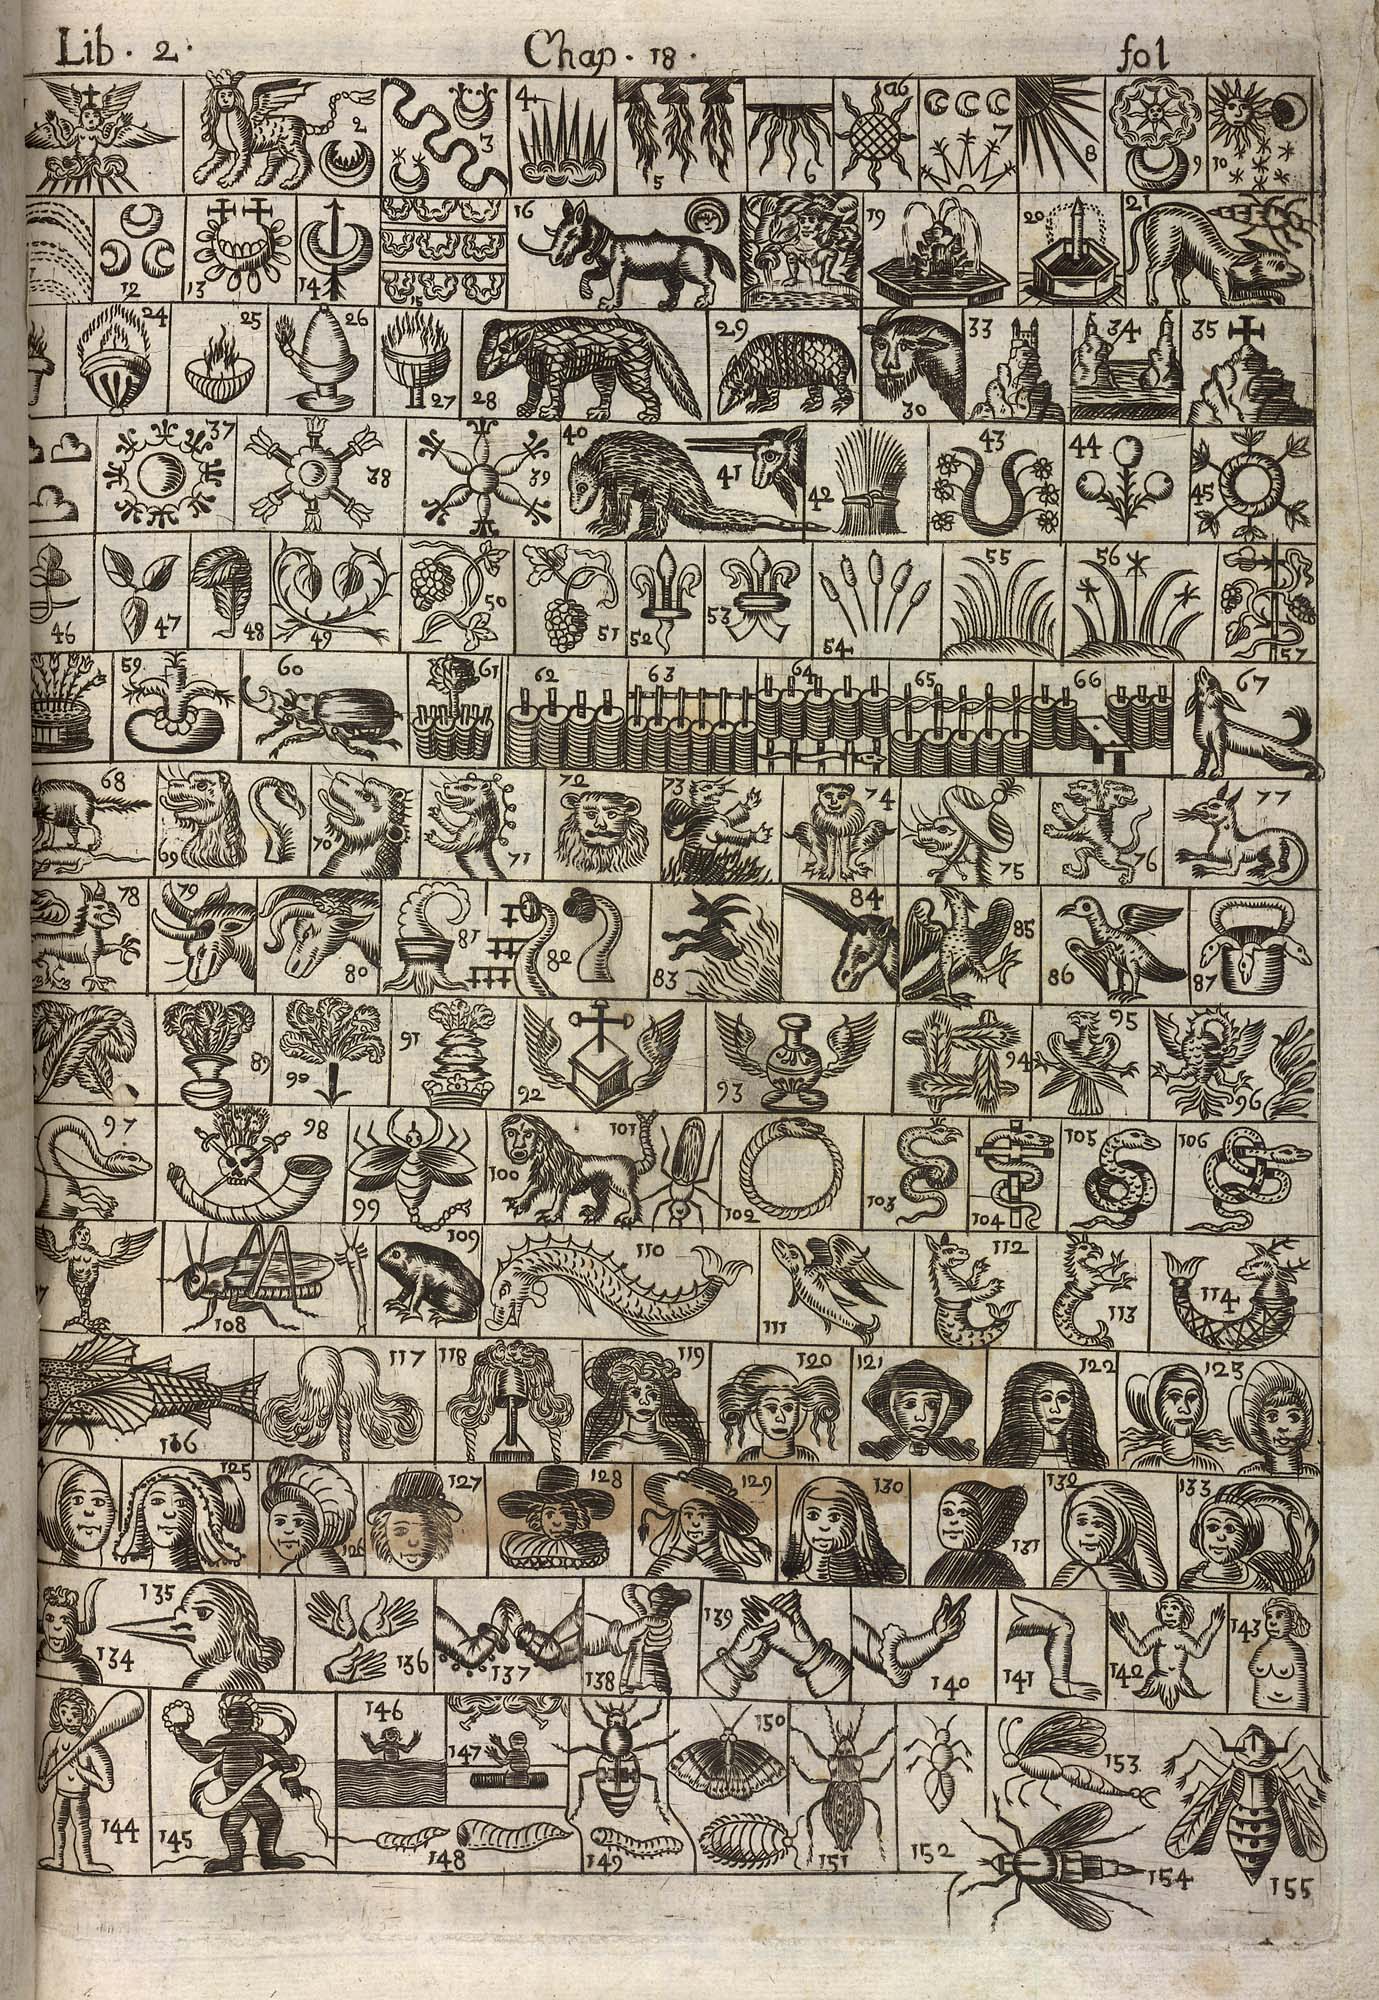 Lib. 2. Chap. 18. fol
2 3 4 5 6 a6 7 8 9 10
12 13 14 15 16 19 20 21
24 25 26 27 28 29 30 33 34 35
37 38 39 40 41 42 43 44 45
46 47 48 49 50 51 52 53 54 55 56 57
59 60 61 62 63 64 65 66 67
68 69 70 71 72 73 74 75 76 77
78 79 80 81 82 83 84 85 86 87
89 90 91 92 93 94 95 96
97 98 99 100 101 102 103 104 105 106
108 109 110 111 112 113 114
116 117 118 119 120 121 122 125
125 126 127 128 129 130 131 132 133
134 135 136 137 138 139 140 141 142 143
144 145 146 147 148 149 150 151 152 153 154 155